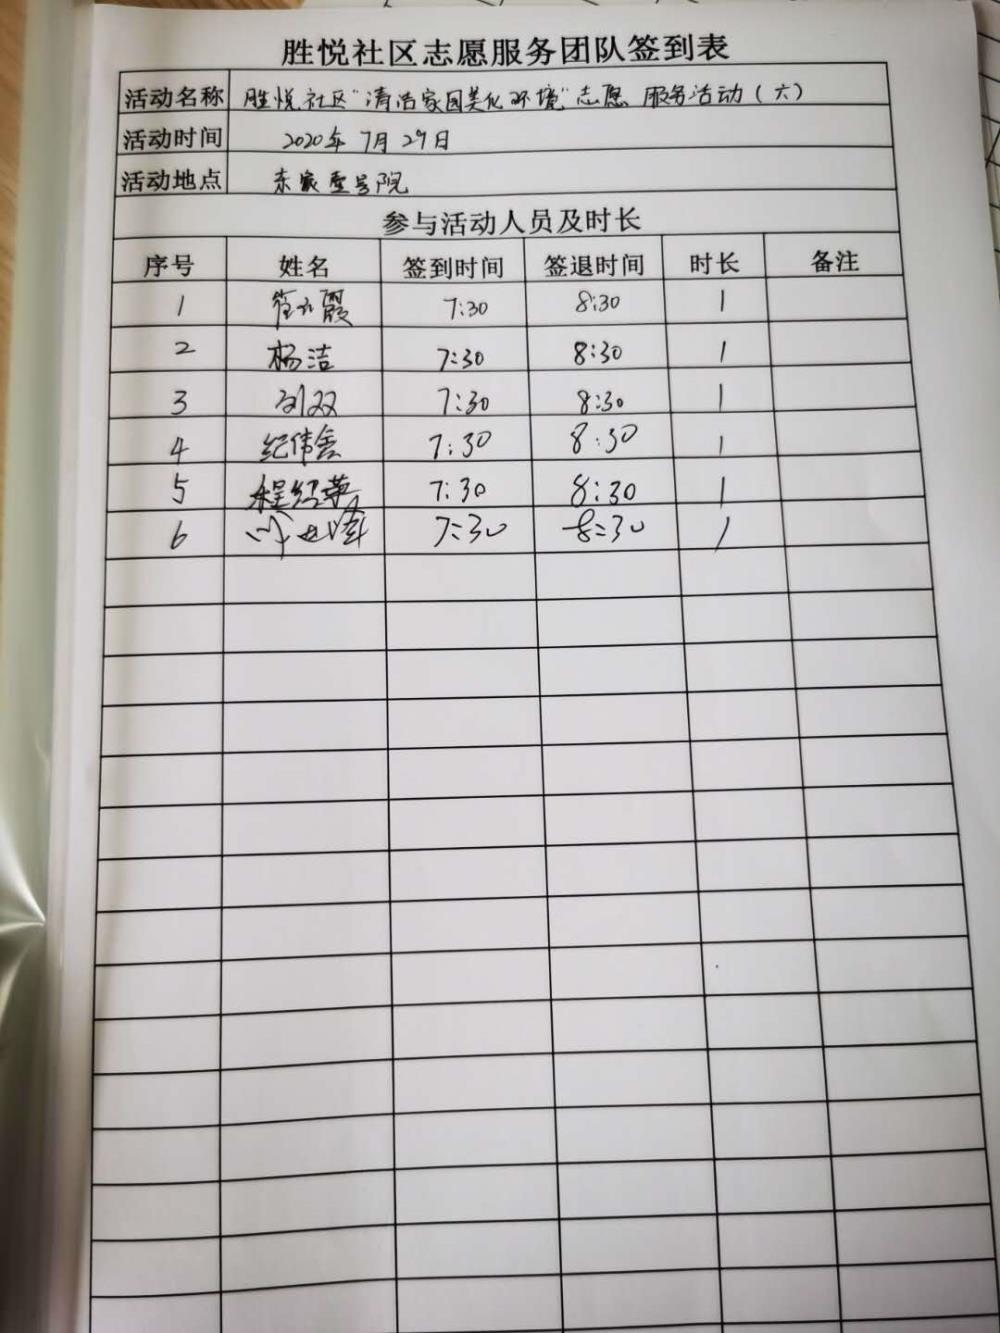 胜悦社区志愿服务团队签到表
活动名称 胜悦社区"清洁家园美化环境"志愿服务活动(六)
活动时间 2020年7月29日
活动地点 号院
参与活动人员及时长
序号 姓名 签到时间 签退时间 时长 备注
1 霞 7:30 8:30 1
2 杨洁 7:30 8:30 1
3 刘双 7:30 8:30 1
4 纪伟 7:30 8:30 1
5 程绍英 7:30 8:30 1
6 7:30 8:30 1